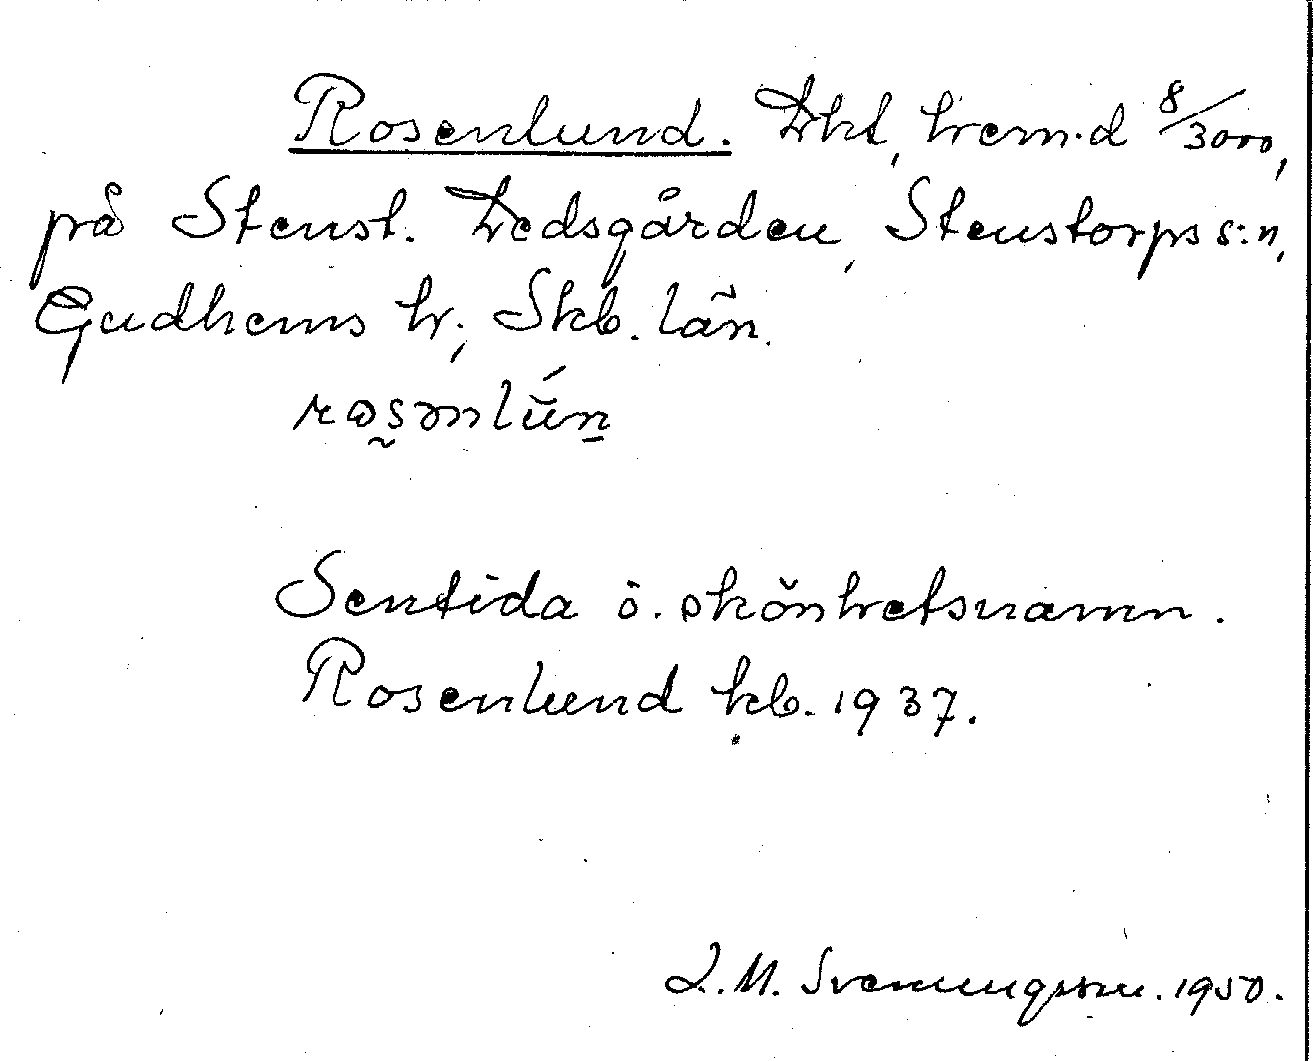 Rosenlund. Lht, hem.d 8/3000,
på Stenst. Dedsgården, Stenstorps s:n,
Gudhems hr; Skb. län.
rosənlún
Sentida ö. skönhetsnamn.
Rosenlund kb. 1937.
L. M. Svenungsson. 1950.